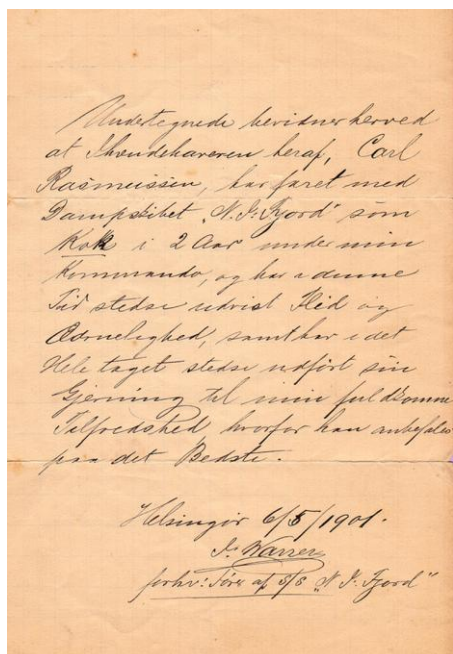 Undertegnede bevidner herved
at Ihændehaveren heraf, Carl
Rasmussen, har faret med
Dampskibet „N. J. Fjord" som
Kok i 2 Aar under min
Kommando, og har i denne
Tid stedse udvist Flid og
Ædruelighed, samt har i det
Hele taget stedse udført sin
Gjerning til min fuldkomne
Tilfredshed hvorfor han anbefales
paa det Bedste.
Helsingør 6/5/1901.
forhv: Fører af S/S „N. J. Fjord"